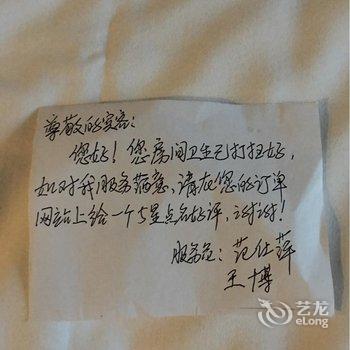 尊敬的宾客：
您好！您房间卫生已打扫好，
如对我服务满意，请在您的订单
网站上给一个5星点名好评，谢谢！
服务员：范仕萍
王博
艺龙
eLong